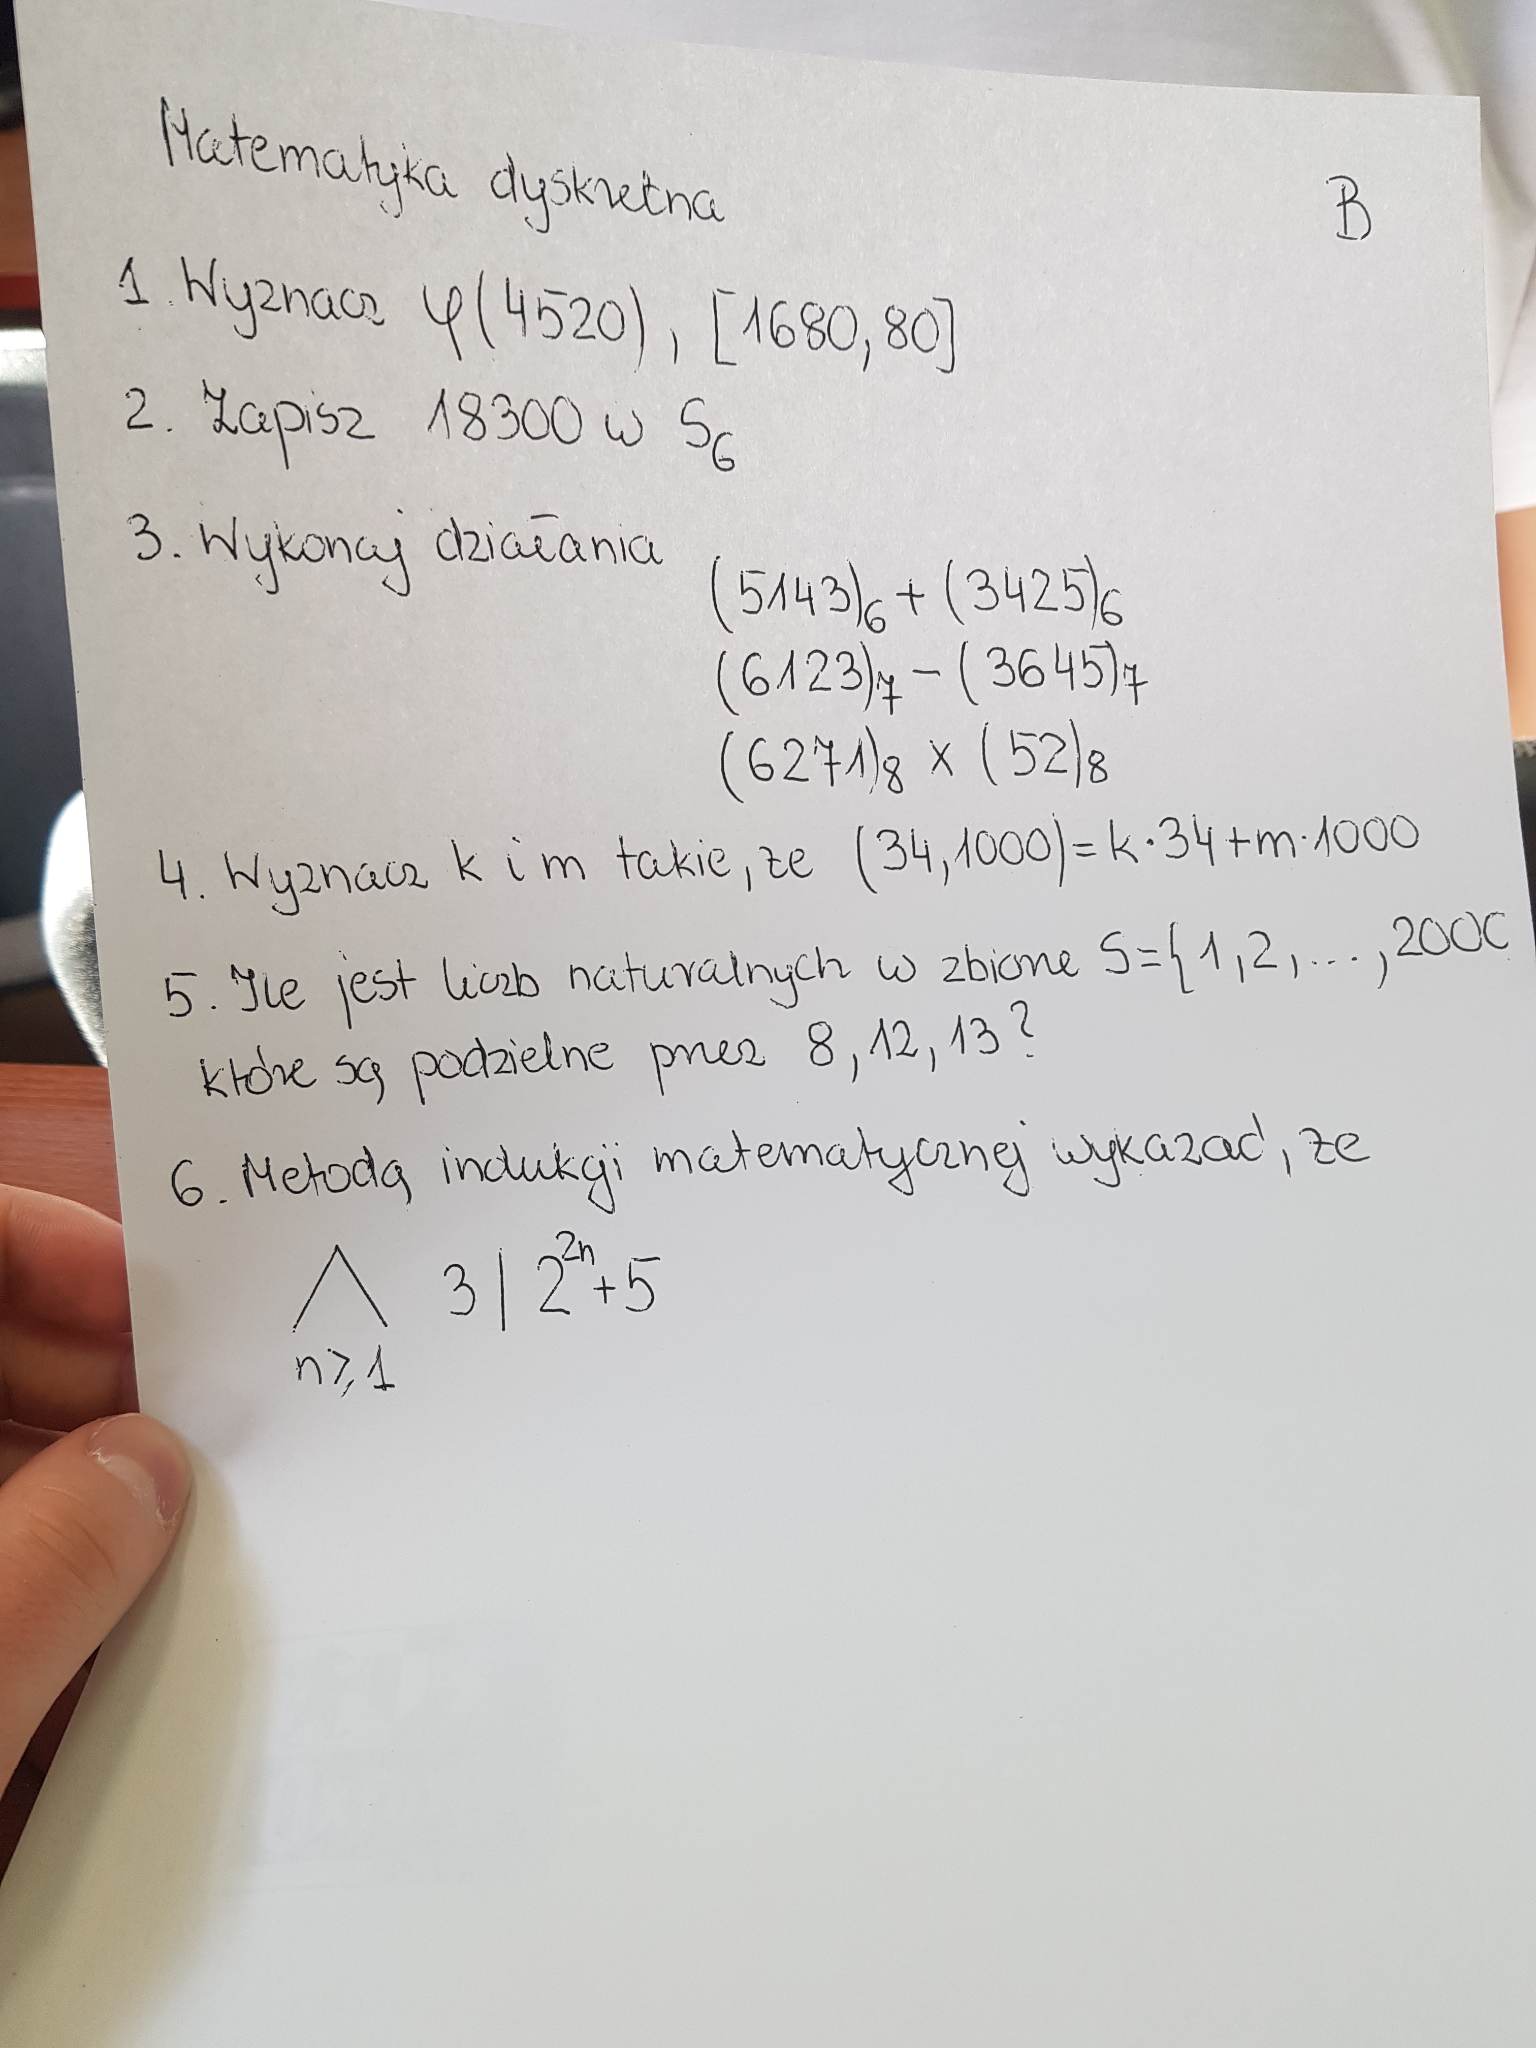 Matematyka dyskretna
B
1. Wyznacz φ(4520), [1680,80]
2. Zapisz 18300 w S₆
3. Wykonaj działania
(5143)₆ + (3425)₆
(6123)₇ − (3645)₇
(6271)₈ × (52)₈
4. Wyznacz k i m takie, że (34,1000)=k·34+m·1000
5. Ile jest liczb naturalnych w zbiorze S={1,2,...,2000
które są podzielne przez 8,12,13?
6. Metodą indukcji matematycznej wykazać, że
⋀ 3 | 2²ⁿ+5
n≥1